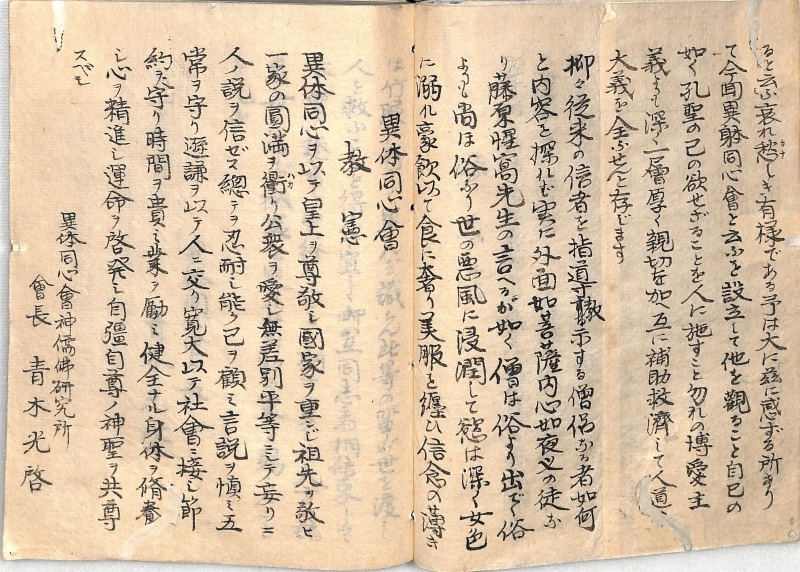 ると云ふ哀れ愁しき有様である予は大に茲に感ずる所あり
て今回異躰同心會と云ふを設立して他を觀ること自己の
如く孔聖の己の欲せざることを人に施すこと勿れの博る愛主
義よりも深く一層厚く親切を加へ互に補助救濟して人道
大義を全ふせんと存じます
抑々従来の信者を指導する僧侶なる者如何
と内容を探れば実に外面如菩薩内心如夜叉の徒な
り藤原惺窩先生の言へるが如く僧は俗より出でゝ俗
よりも尚は俗なり世の悪風に浸潤して慾は深く女色
に溺れ豪飲以て食に奢り美服を纏ひ信念の薄き
異体同心會
教憲
異体同心ヲ以テ皇上ヲ尊敬シ國家ヲ重ンジ祖先ヲ敬ヒ
一家の圓満ヲ衝り公衆ヲ愛シ無差別平等ニシテ妄リニ
人ノ説ヲ信ゼス總テヲ忍耐シ能ク己ヲ顧ミ言説ヲ慎ミ五
常ヲ守リ遜謙ヲ以テ人ニ交リ寛大以テ社會ニ接シ節
約ヲ守リ時間ヲ貴ミ業ヲ励ミ健全ナル身体ヲ脩養
シ心ヲ精進シ運命ヲ啓発シ自彊自尊ノ神聖ヲ共尊
スベシ
異体同心會神儒佛研究所
會長 青木光啓